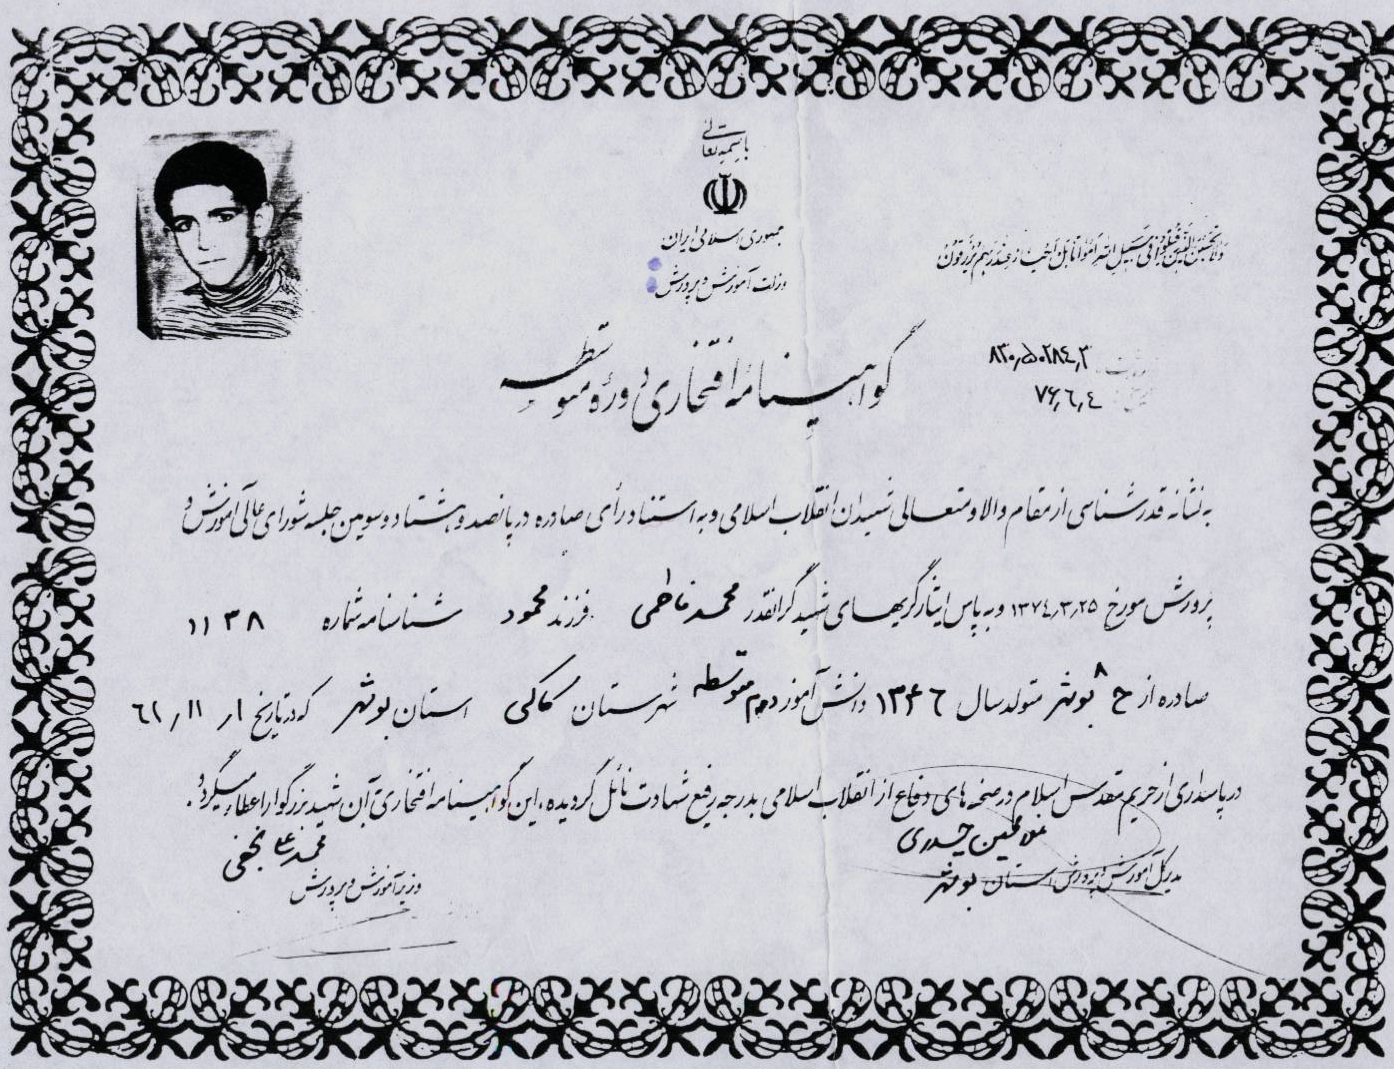 باسمه تعالی
جمهوری اسلامی ایران
وزارت آموزش و پرورش
ولا تحسبن الذین قتلوا فی سبیل الله امواتا بل احیاء عند ربهم یرزقون
۸۳۰٫۵۰۲۸٤٫۳
۷۶٫۶٫٤
گواهینامهٔ افتخاری دورهٔ متوسطه
به نشانه قدرشناسی از مقام والا و متعالی شهیدان انقلاب اسلامی و به استناد رأی صادره در پانصد و هشتاد و سومین جلسه شورای عالی آموزش و
پرورش مورخ ۱۳۷٤٫۳٫۲۵ و به پاس ایثارگریهای شهید گرانقدر محمد فاطمی فرزند محمود شناسنامه شماره ۱۱۳۸
صادره از ح ۸ بوشهر متولد سال ۱۳۴۶ دانش آموز دوم متوسطه شهرستان کاکی استان بوشهر که در تاریخ ۱٫ ۱۱٫ ۶۱
در پاسداری از حریم مقدس اسلام در صحنه های دفاع از انقلاب اسلامی بدرجه رفیع شهادت نائل گردیده، این گواهینامه افتخاری آن شهید بزرگوار اعطاء میگردد.
غلامحسین حیدری
مدیرکل آموزش و پرورش استان بوشهر
محمد علی نجفی
وزیر آموزش و پرورش